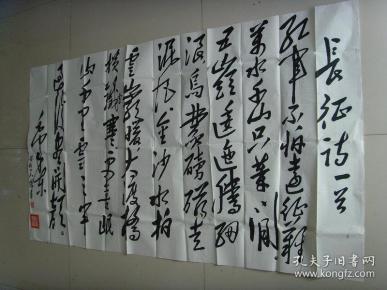 長征诗一首
紅軍不怕遠征難
萬水千山只等闲
五嶺逶迤騰细
浪烏蒙磅礴走
泥丸金沙水拍
雲崖暖大渡橋
横鐵索寒更喜岷
山千里雪三軍
過後盡開颜
毛澤東
孔夫子旧书网